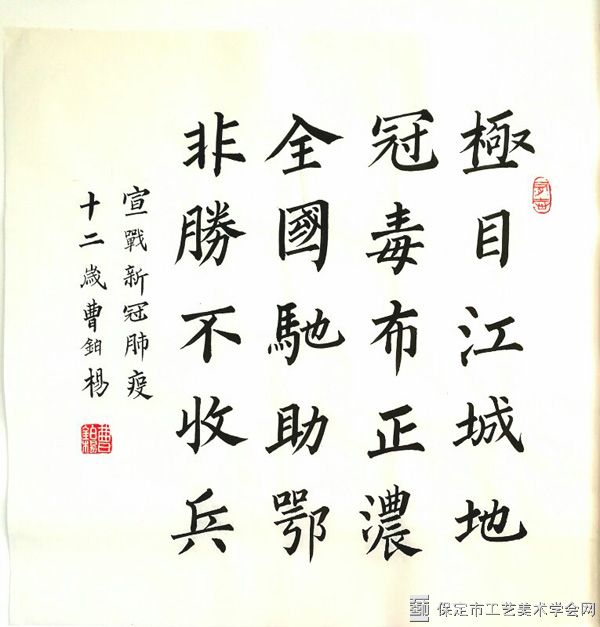 極目江城地
冠毒布正濃
全國馳助鄂
非勝不收兵
宣戰新冠肺疫
十二歲曹鉑楊
曹鉑楊
保定市工艺美术学会网